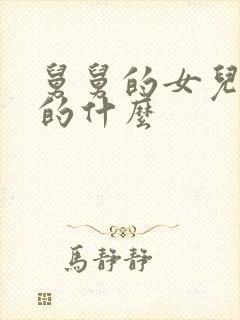 舅舅的女兒
的什麼
馬靜靜